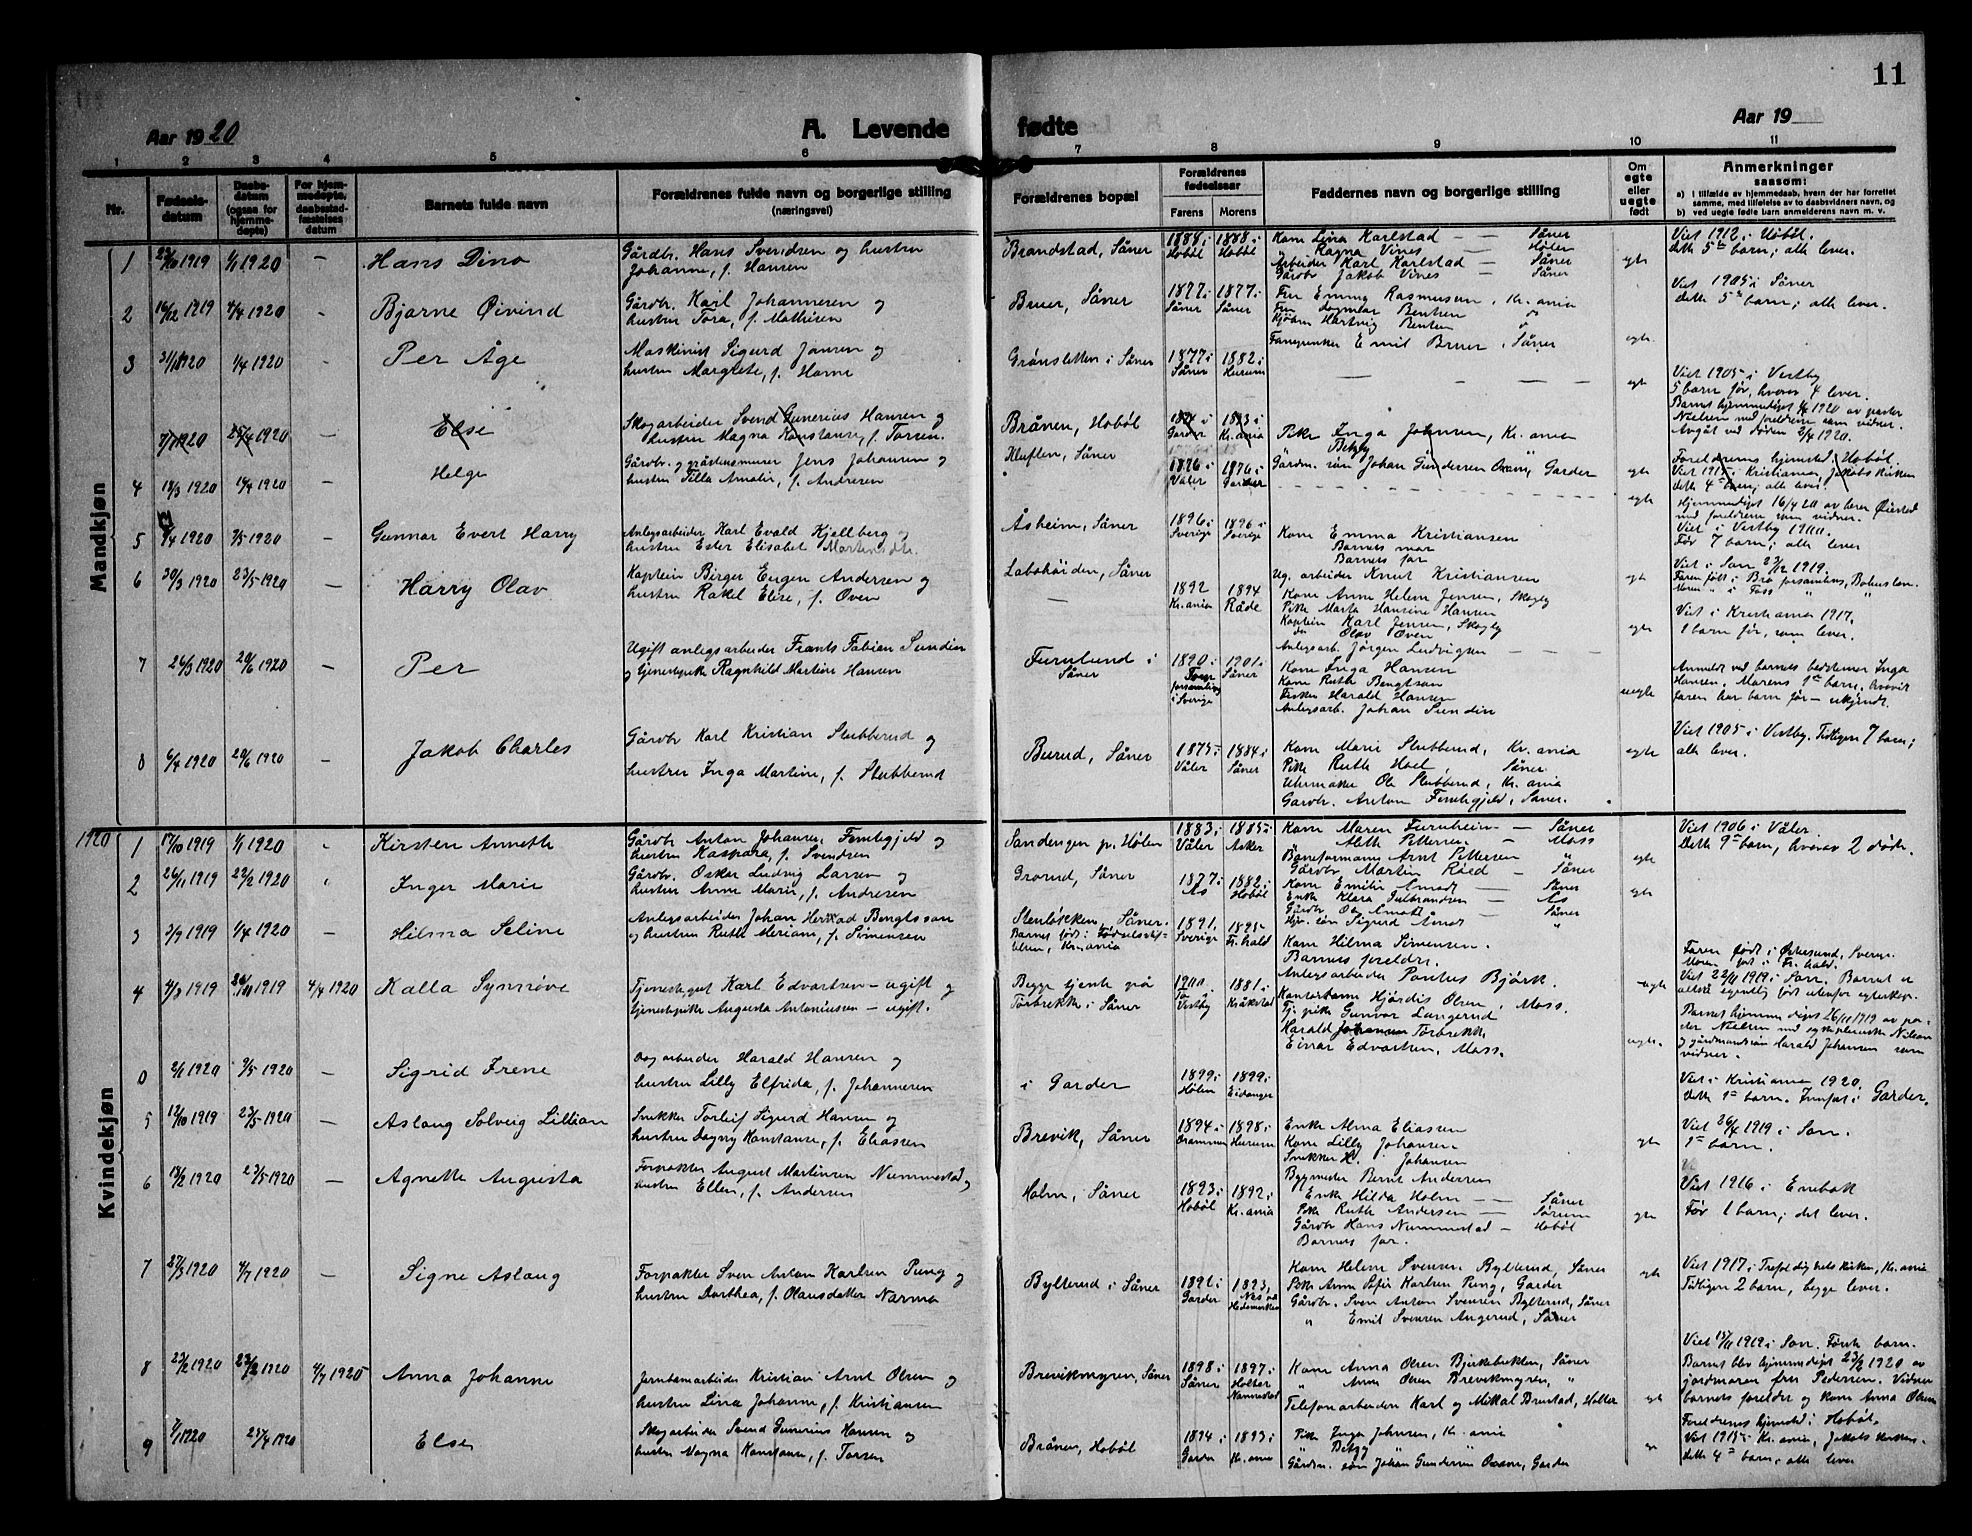 11
Aar 1920
A. Levende fødte
Aar 19
1 2 3 4 5 6 7 8 9 10 11
Nr.
Fødsels-
datum
Daabs-
datum
(ogsaa for
hjemme-
døpte)
For hjem-
medøpte,
daabsstad-
fæstelses
datum
Barnets fulde navn
Forældrenes fulde navn og borgerlige stilling
(næringsvei)
Forældrenes bopæl
Forældrenes
fødselsaar
Farens Morens
Faddernes navn og borgerlige stilling
Om
egte
eller
uegte
født
Anmerkninger
saasom:
a) i tilfælde av hjemmedaab, hvem der har forrettet
samme, med tilføielse av to daabsvidners navn, og
b) ved uegte fødte barn anmelderens navn m. v.
Mandkjøn
1 1/1 1920 - Hans Dino
Gårdbr. Hans Svendsen og hustru
Johanne, f. Hansen
Brandstad, Såner
1888 i Hobøl 1888 i Hobøl
Kone Lina Karlstad — Såner
" Ragna Vines — Hølen
Arbeider Karl Karlstad — Såner
Gårdbr. Jakob Vines — Såner
egte
Viet 1912 i Hobøl.
dette 5te barn; alle lever.
2 16/12 1919 4/4 1920 - Bjarne Øivind
Gårdbr. Karl Johannesen og
hustru Tora, f. Mathisen
Bruer, Såner
1877 i Såner 1877 i Såner
Fru Emma Rasmussen, Kr.ania
Fru Dagmar Bentsen "
Kjøbm. Hartvig Bentsen "
Emil Bruer, Såner
egte
Viet 1905 i Såner
dette 5te barn; alle lever.
3 1/4 1920 - Per Åge
Maskinist Sigurd Jansen og
hustru Margrete, f. Horne
Grønsletten i Såner
1877 i Såner 1882 i Hurum
egte
Viet 1905 i Vestby
5 barn før, hvorav 4 lever.
Barnet hjemmedøpt 1920 av pastor
Nielsen med foreldrene som vidner.
Avgåt ved døden 2/4 1920.
7/1 1920 25/4 1920 Else
Skogarbeider Svend Gunerius Hansen og
hustru Magna Konstanse, f. Torsen.
Brånen, Hobøl
1894 i Garder 1893 i Kr.ania
Pike Inga Johnsen, Kr.ania
" Betzy
Gårdm. søn Johan Gundersen Oxum, Garder
egte
Foreldrenes hjemsted i Hobøl
Viet 1915 i Kristiania Jakobs kirken
dette 4de barn; alle lever.
4 18/3 1920 1920 - Helge
Gårdbr. og gråstensmurer Jens Johansen og
hustru Tilla Amalie, f. Andresen
Kluften, Såner
1876 i Våler 1876 i Garder
egte
Hjemmedøpt 16/4 20 av lærer Øiestad
med foreldrene som vidner.
Viet i Vestby 1900.
Før 7 barn; alle lever
5 1920 2/5 1920 - Gunnar Evert Harry
Anlegsarbeider Karl Evald Kjellberg og
hustru Ester Elisabet Martinsdtr.
Åsheim, Såner
1896 i Sverige 1896 i Sverige
Kone Emma Kristiansen
Barnets mor
Barnets far
Ug. arbeider Knut Kristiansen
egte
Viet i Son 23/12 1919.
Faren født i Bro forsamling, Bohuslen
Moren " i Foss " "
6 30/3 1920 23/5 1920 - Harry Olav
Kaptein Birger Eugen Andersen og
hustru Rakel Elise, f. Oven
Labohøiden, Såner
1892 Kr.ania 1894 Råde
Kone Anne Helene Jensen, Skogly
Pike Marta Hansine Hansen
Kaptein Karl Jensen, Skogly
do Olav Oven
egte
Viet i Kristiania 1917.
1 barn før, som lever.
7 26/3 1920 20/6 1920 - Per
Ugift anlegsarbeider Frants Fabian Sundin
og tjenestepike Ragnhild Martine Hansen
Furulund i
Såner
1890 i
forsamling
i Sverige
1901 i Såner
Anlegsarb. Jørgen Ludvigsen
Kone Inga Hansen
Kone Ruth Bengtson
Fisker Harald Hansen
Anlegsarb. Johan Sundin
uegte
Anmeldt ved barnets bedstemor Inga
Hansen. Morens 1ste barn, hvorvidt
faren har barn før — ukjendt.
8 6/4 1920 20/6 1920 - Jakob Charles
Gårdbr Karl Kristian Stubberud og
hustru Inga Martine, f. Stubberud
Burud, Såner
1875 i Våler 1884 i Såner
Kone Marie Stubberud, Kr.ania
Pike Ruth Hoel, Såner
Uhrmaker Ole Stubberud, Kr.ania
Gårdbr. Anton Femtegjeld, Såner.
egte
Viet 1905 i Vestby. Tidligere 7 barn;
alle lever.
1920
Kvindekjøn
1 17/10 1919 1/1 1920 Kirsten Annette
Gårdbr Anton Johansen Femtegjeld og
hustru Kaspara, f. Svendsen
Sandengen pr. Hølen
1883 i Våler 1885 i Asker
Kone Maren Furuheim — Såner
" Aleth Pettersen — Moss
Baneformann Arnt Pettersen "
Gårdbr Martin Røed — Såner
egte
Viet 1906 i Våler.
Dette 9de barn, hvorav 2 døde.
2 26/11 1919 22/2 1920 Inger Marie
Gårdbr. Oskar Ludvig Larsen og
hustru Anne Marie, f. Andresen
Grorud, Såner
1877 i Ås 1882 i Hobøl
Kone Emilie — Såner
Enke Klara Gulbrandsen — Ås
Gårdbr Ole — Såner
søn Sigurd Åmot "
egte
3 3/9 1919 1/4 1920 Hilma Seline
Anlegsarbeider Johan Bengtsson
og hustru Ruth Meriam, f. Simensen
Stenløkken, Såner.
Barnet født i Fødselsstif-
telsen, Kr.ania
1891 i Sverige 1895 Fr.hald
Kone Hilma Simensen.
Barnets foreldre.
Anlegsarbeider Pontus Bjørk.
egte
Faren født i Sverige.
Moren født i Fr.hald.
Viet 22/11 1919 i Son. Barnet er
altså egentlig født utenfor egteskap.
4 4/8 1919 26/11 1919 4/4 1920 Kalla Synnøve
Tjenestegut Karl Edvartsen — ugift og
tjenestepike Augusta Antoniussen — ugift.
Begge tjente på
Torbrekke i Såner
1900 i Vestby 1881 i Kråkstad
Kontordame Hjørdis Olsen, Moss.
Tj. pike Gunvor Langerud
Harald Johansen Torbrekke
Einar Edvartsen, Moss.
uegte.
Barnet hjemmedøpt 26/11 1919 av pa-
stor Nielsen med sykepleierske Nilsen
og gårdmandsøn Harald Johansen som
vidner.
0 2/1 1920 9/5 1920 - Sigrid Irene
arbeider Harald Hansen og
hustru Lilly Elfrida, f. Johannesen
i Garder
1899 i Hølen 1899 i Eidanger
Viet i Kristiania 1920.
Dette 1ste barn. Innført i Garder.
5 12/10 1919 23/5 1920 - Aslaug Solveig Lillian
Snekker Torleif Sigurd Hansen og
hustru Dagny Konstanse, f. Eliassen
Brevik, Såner
1894 i Drammen 1898 i Hurum
Enke Alma Eliassen
Kone Lilly Johansen
Snekker H. Johansen
Byggmester Bernt Andersen
egte
Viet 26/4 1919 i Son.
1ste barn.
6 18/2 1920 23/5 1920 - Agnethe Augusta
Forpakter August Martinsen Nummestad og
hustru Ellen, f. Andersen
Holm, Såner
1893 i Hobøl 1892 i Kr.ania
Enke Hilda Holm — Såner
Pike Ruth Andersen — Sørum
Gårdbr Hans Nummestad — Hobøl
Barnets far.
egte
Viet 1916 i Enebak
Før 1 barn; det lever.
7 27/3 1920 4/7 1920 - Signe Aslaug
Forpakter Sven Anton Karlsen Pung og
hustru Dorthea, f. Olausdatter Narmo
Byllerud i Såner
1892 i Garder 1893, Nes på Hedemarken
Kone Helene Svensen Byllerud, Såner
Pike Anna Sofie Karlsen Pung, Garder
Gårdbr. Sven Anton Svensen Byllerud, Såner
" Emil Svensen Angerud, Såner
egte
Viet 1917 i Trefoldighets kirken, Kr.ania
Tidligere 2 barn, begge lever.
8 23/2 1920 23/2 1920 4/7 1920 Anna Johanne
Jernbanearbeider Kristian Arnt Olsen og
hustru Lina Johanne, f. Kristiansen
Brevikmyren, Såner
1898 i Såner 1897 i
Kone Anna Olsen Bjerkebækken, Såner
" Anna Olsen Brevikmyren, "
Telefonarbeidere Karl og Mikkal Brestad, Holter
egte
Viet 15/11 1919 i Son. Første barn.
Barnet blev hjemmedøpt 23/2 1920 av
jordmoren fru Pedersen. Vidner
barnets foreldre og kone Anna Olsen
9 7/1 1920 25/4 1920 Else
Skogarbeider Svend Gunerius Hansen og
hustru Magna Konstanse, f. Torsen
Brånen, Hobøl
1894 i Garder 1893 i Kr.ania
Pike Inga Johnsen, Kr.ania
" Betzy "
Gårdm. søn Johan Gundersen Oxum, Garder
Foreldrenes hjemsted i Hobøl.
Viet 1915 i Kr.ania, Jakobs kirken.
dette 4de barn; alle lever